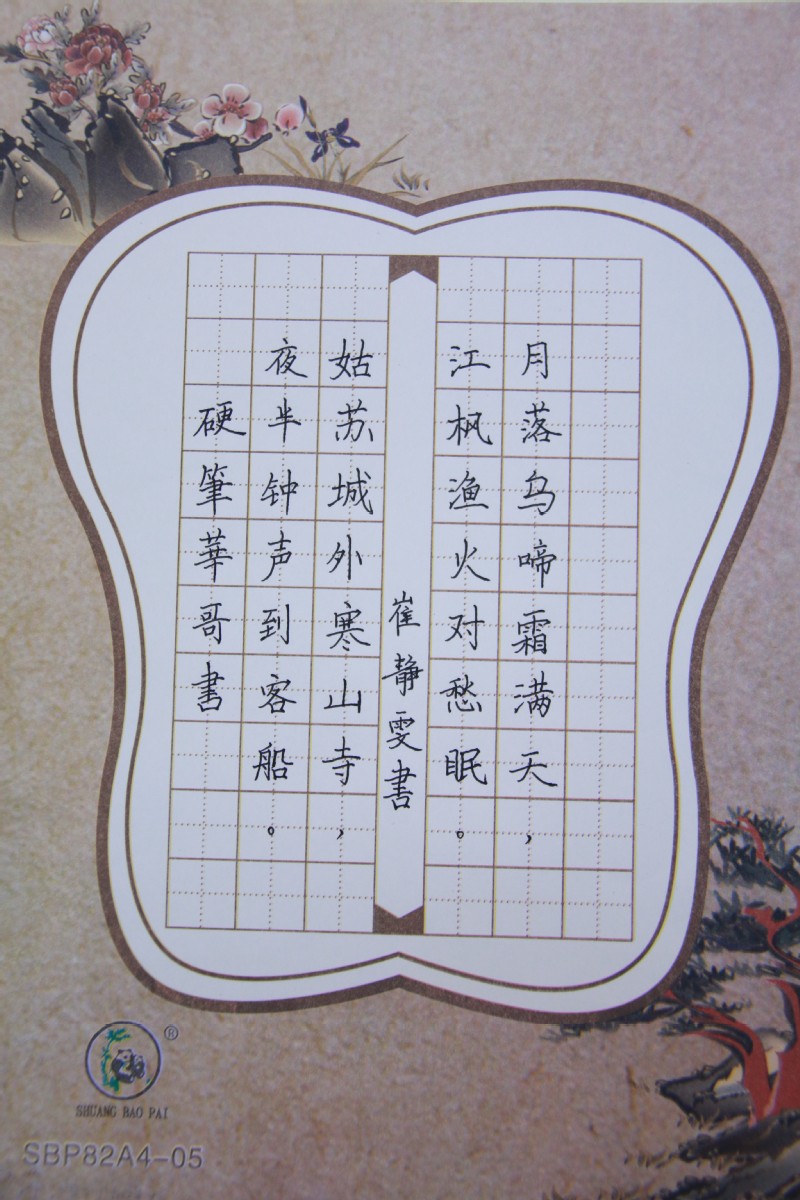 月落乌啼霜满天，
江枫渔火对愁眠。
崔静雯書
姑苏城外寒山寺，
夜半钟声到客船。
硬筆華哥書
SHUANG BAO PAI
®
SBP82A4-05